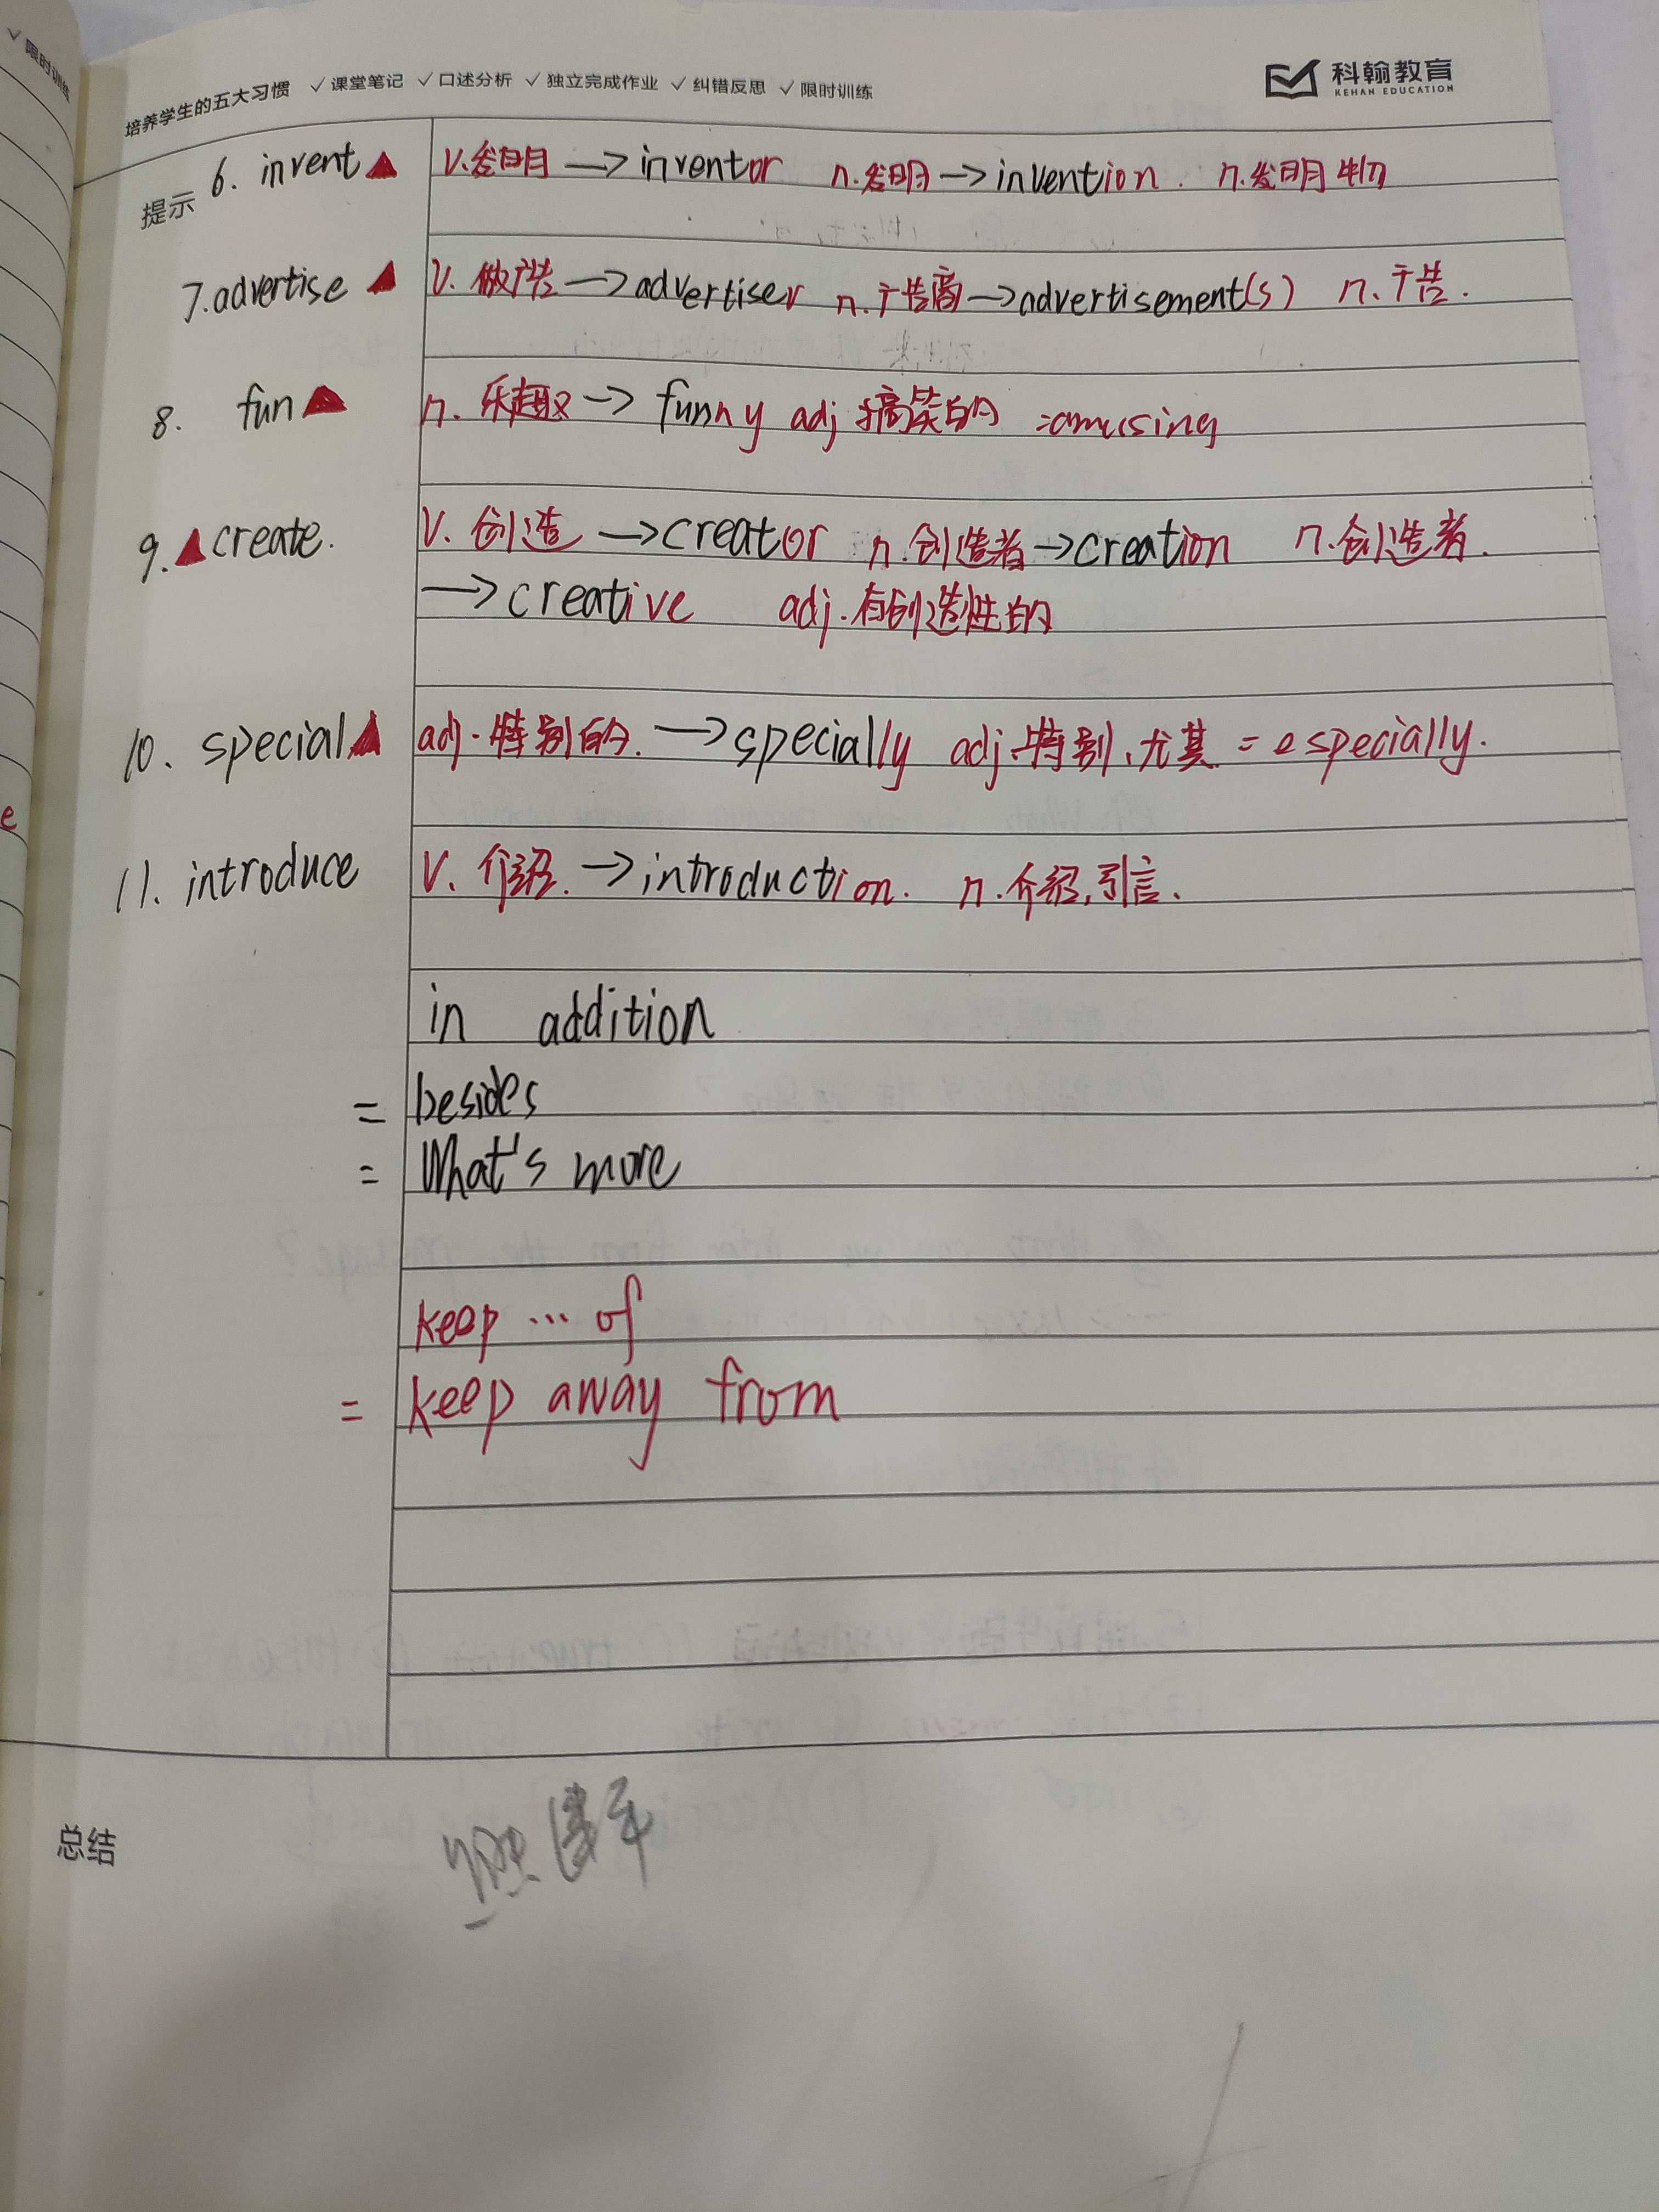 限时训练
培养学生的五大习惯 ✓课堂笔记 ✓口述分析 ✓独立完成作业 ✓纠错反思 ✓限时训练
科翰教育
KEHAN EDUCATION
提示
6. invent▲ v.发明 → inventor n.发明 → invention. n.发明物
7. advertise ▲ v. 做广告 → advertiser n.广告商 → advertisement(s) n.广告.
8. fun▲ n. 乐趣 → funny adj 搞笑的 =amusing
9.▲create. v. 创造 → creator n.创造者 → creation n.创造者.
→ creative adj.有创造性的
10. special▲ adj.特别的. → specially adj.特别,尤其 = especially.
e
11. introduce v. 介绍. → introduction. n.介绍,引言.
in addition
= besides
= What's more
keep … of
= keep away from
总结